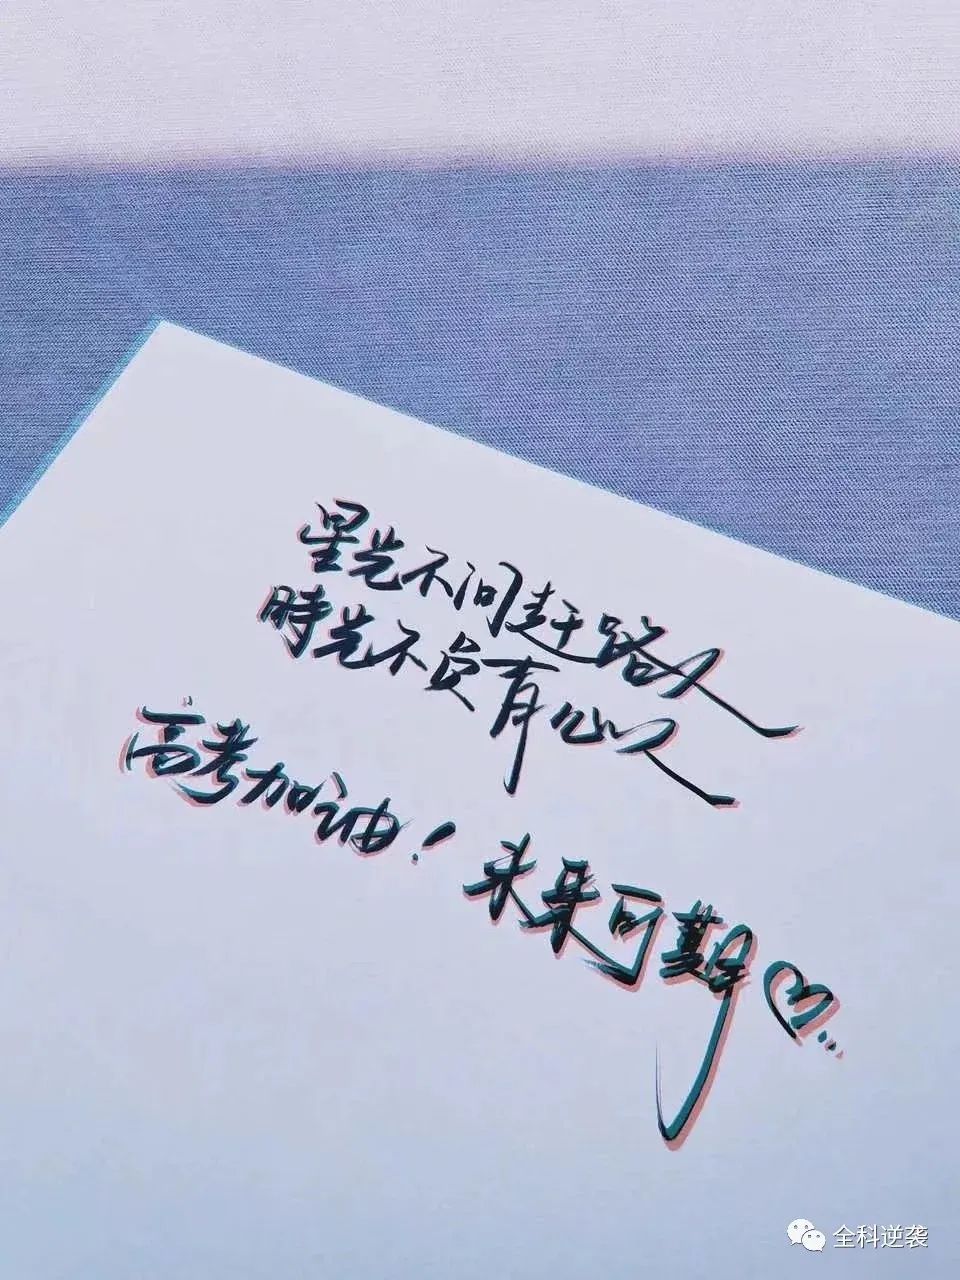 星光不问赶路人
時光不负有心人
高考加油！未来可期
全科逆袭